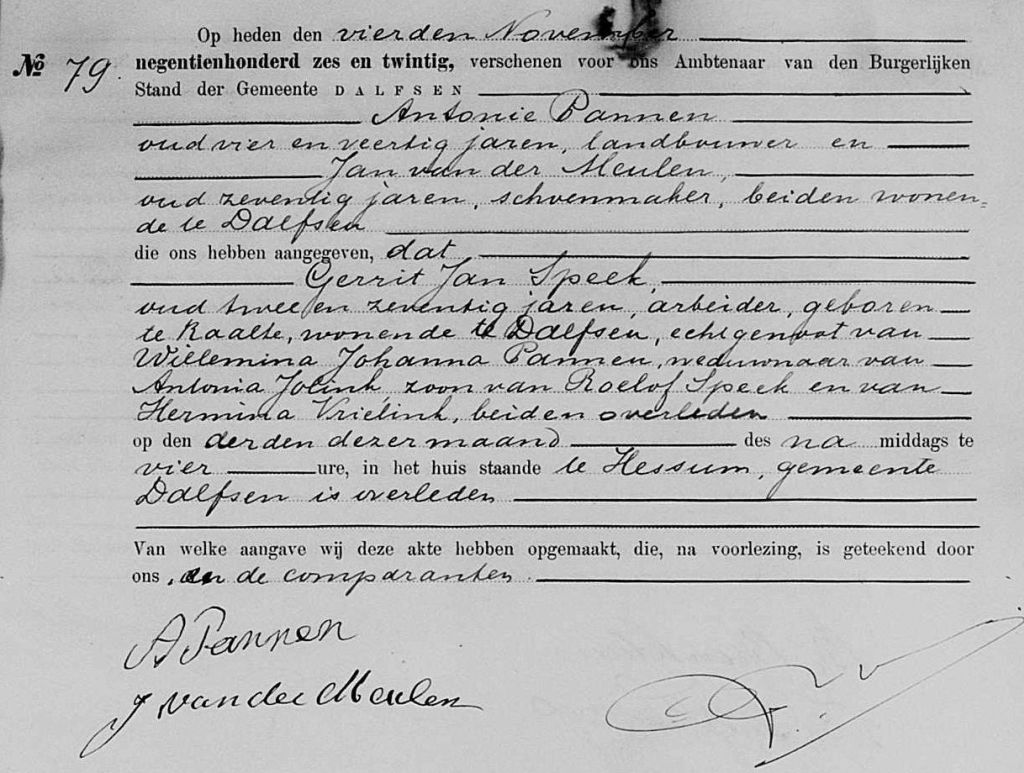 Op heden den vierden November
No 79. negentienhonderd zes en twintig, verschenen voor ons Ambtenaar van den Burgerlijken
Stand der Gemeente DALFSEN
Antonie Pannen
oud vier en veertig jaren, landbouwer en
Jan van der Meulen,
oud zeventig jaren, schoenmaker, beiden wonen=
de te Dalfsen
die ons hebben aangegeven, dat
Gerrit Jan Speek,
oud twee en zeventig jaren, arbeider, geboren
te Raalte, wonende te Dalfsen, echtgenoot van
Willemina Johanna Pannen, weduwnaar van
Antonia Jolink zoon van Roelof Speek en van
Hermina Vrielink, beiden overleden
op den derden dezer maand des na middags te
vier ure, in het huis staande te Hessum, gemeente
Dalfsen is overleden
Van welke aangave wij deze akte hebben opgemaakt, die, na voorlezing, is geteekend door
ons, en de comparanten.
A Pannen
J van der Meulen